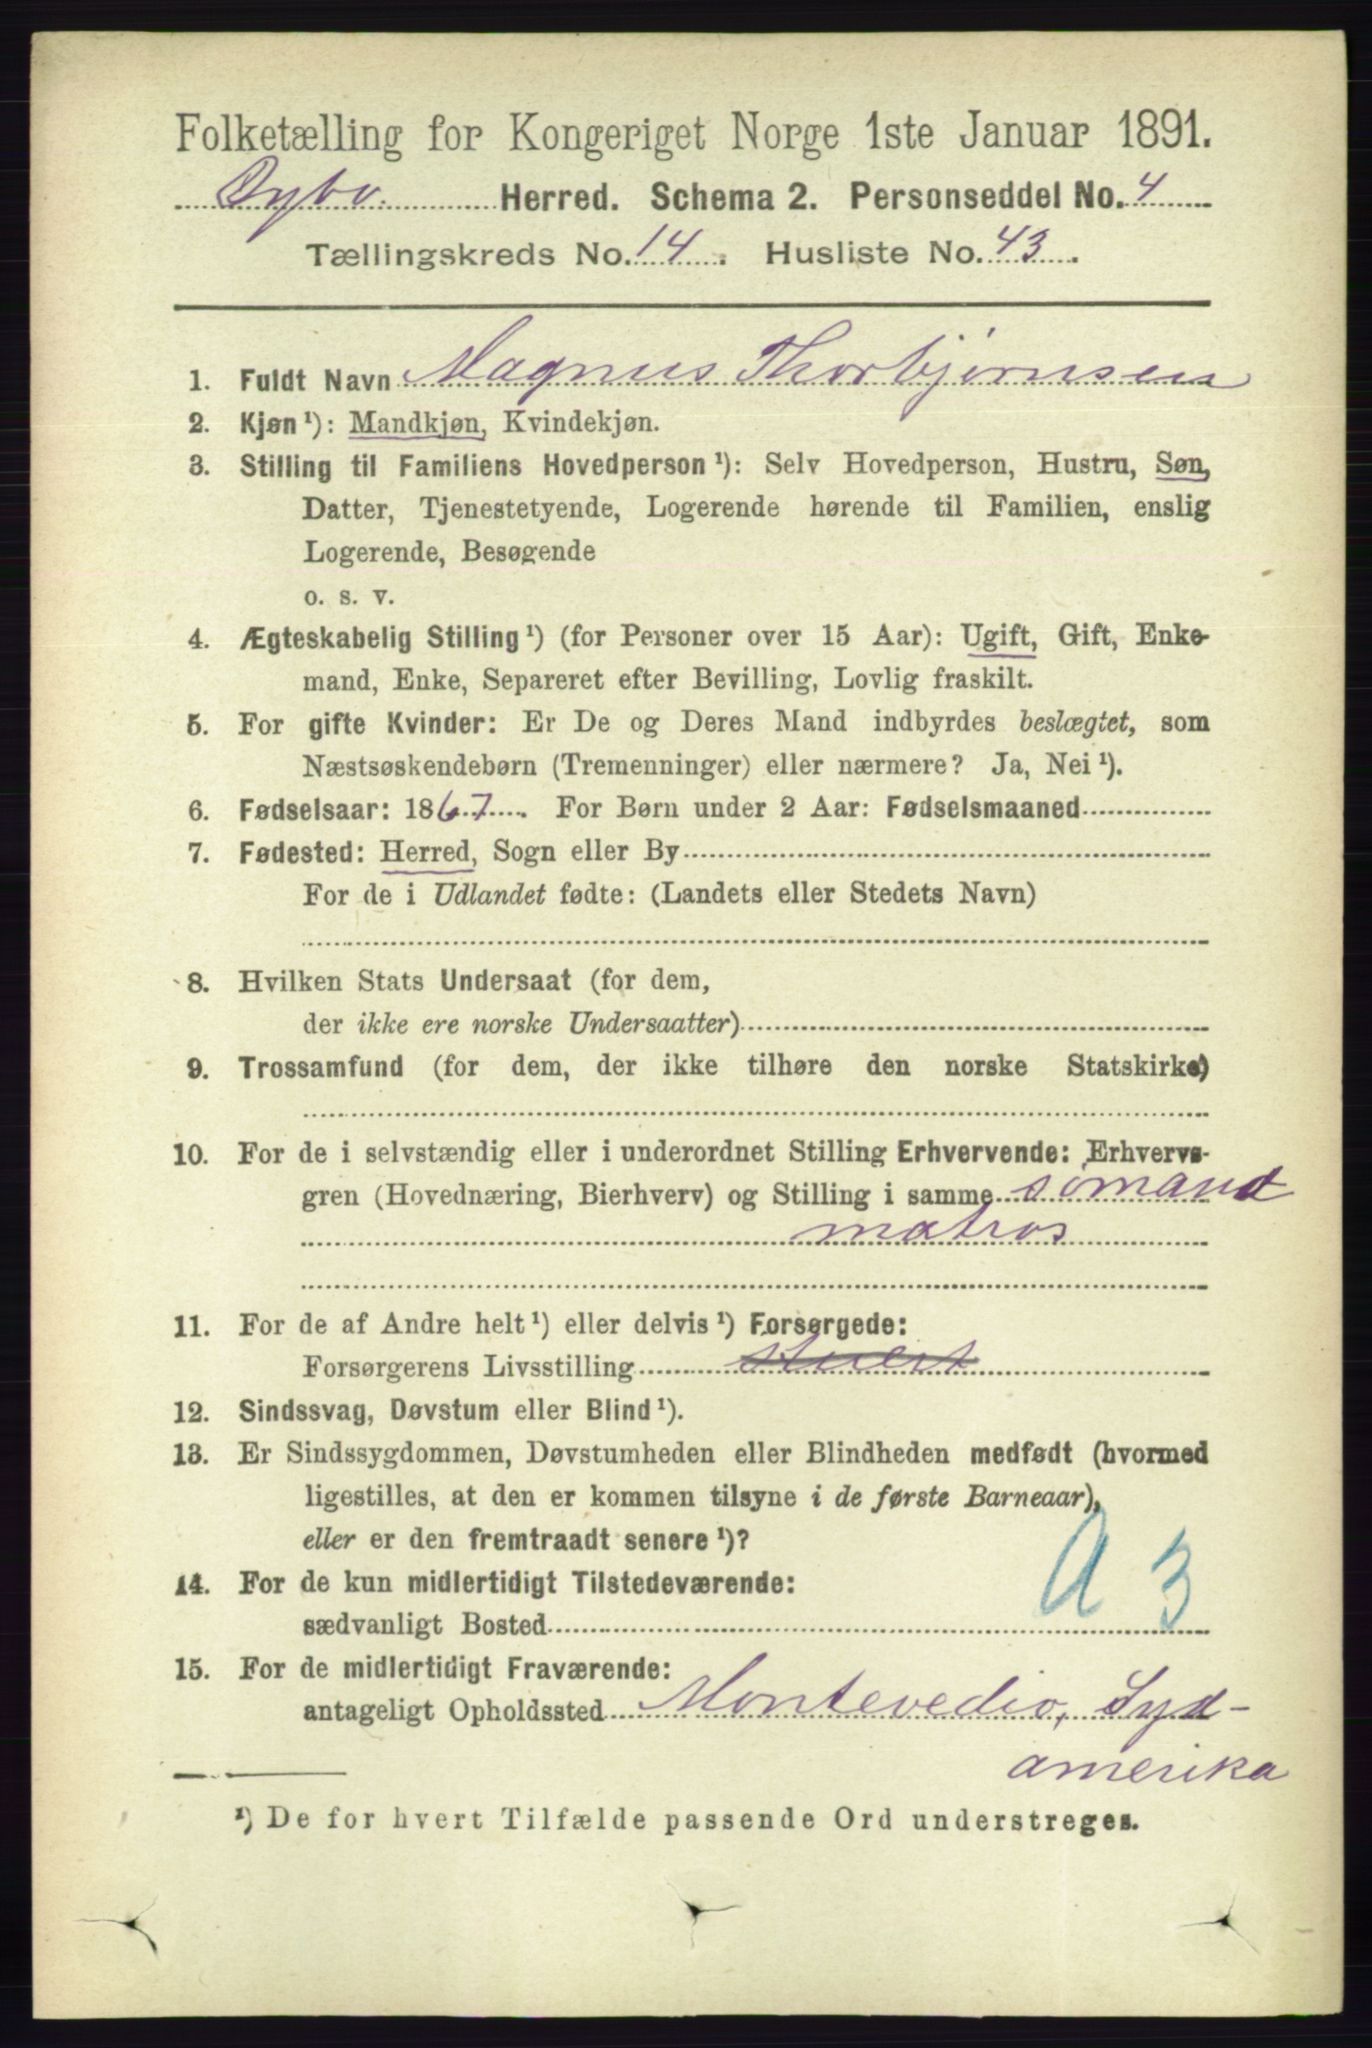 Folketælling for Kongeriget Norge 1ste Januar 1891.
Herred. Schema 2. Personseddel No. 4
Tællingskreds No. 14. Husliste No. 43.
1. Fuldt Navn Magnus Thorbjørnsen
2. Kjøn ¹): Mandkjøn, Kvindekjøn.
3. Stilling til Familiens Hovedperson ¹): Selv Hovedperson, Hustru, Søn,
Datter, Tjenestetyende, Logerende hørende til Familien, enslig
Logerende, Besøgende
o. s. v.
4. Ægteskabelig Stilling ¹) (for Personer over 15 Aar): Ugift, Gift, Enke-
mand, Enke, Separeret efter Bevilling, Lovlig fraskilt.
5. For gifte Kvinder: Er De og Deres Mand indbyrdes beslægtet, som
Næstsøskendebørn (Tremenninger) eller nærmere? Ja, Nei ¹).
6. Fødselsaar: 1867. For Børn under 2 Aar: Fødselsmaaned
7. Fødested: Herred, Sogn eller By
For de i Udlandet fødte: (Landets eller Stedets Navn)
8. Hvilken Stats Undersaat (for dem,
der ikke ere norske Undersaatter)
9. Trossamfund (for dem, der ikke tilhøre den norske Statskirke)
10. For de i selvstændig eller i underordnet Stilling Erhvervende: Erhvervs-
gren (Hovednæring, Bierhverv) og Stilling i samme sømand
matros
11. For de af Andre helt ¹) eller delvis ¹) Forsørgede:
Forsørgerens Livsstilling
12. Sindssvag, Døvstum eller Blind ¹).
13. Er Sindssygdommen, Døvstumheden eller Blindheden medfødt (hvormed
ligestilles, at den er kommen tilsyne i de første Barneaar),
eller er den fremtraadt senere ¹)?
A 3
14. For de kun midlertidigt Tilstedeværende:
sædvanligt Bosted
15. For de midlertidigt Fraværende:
antageligt Opholdssted Montevedio, Syd-
amerika
¹) De for hvert Tilfælde passende Ord understreges.